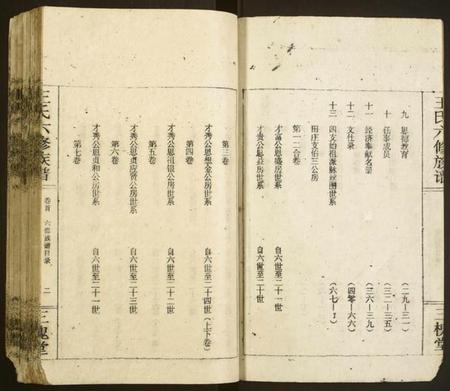 王氏六修族谱
三槐堂
九 恩德教育 (二九—三一)
十 任事成员 (三二—三五)
十一 经济奉献名录 (三六—三九)
十二 文仕录 (四零—六六)
十三 四支始祖源脉丝图世系 (六七—)
田庄支始三公房
第一二合卷
才富公思盛房世系 自六世至二十一世
才贵公思益房世系 自六世至二十一世
第三卷
才秀公思想金公房世系 自六世至二十四世(上下卷)
第四卷
才秀公思祖银公房世系 自六世至二十二世
第五卷
才秀公思贞应贤公房世系 自六世至二十三世
第六卷
才秀公思贞和公房世系 自六世至二十一世
第七卷
王氏六修族谱
卷首 六修族谱目录 二
三槐堂